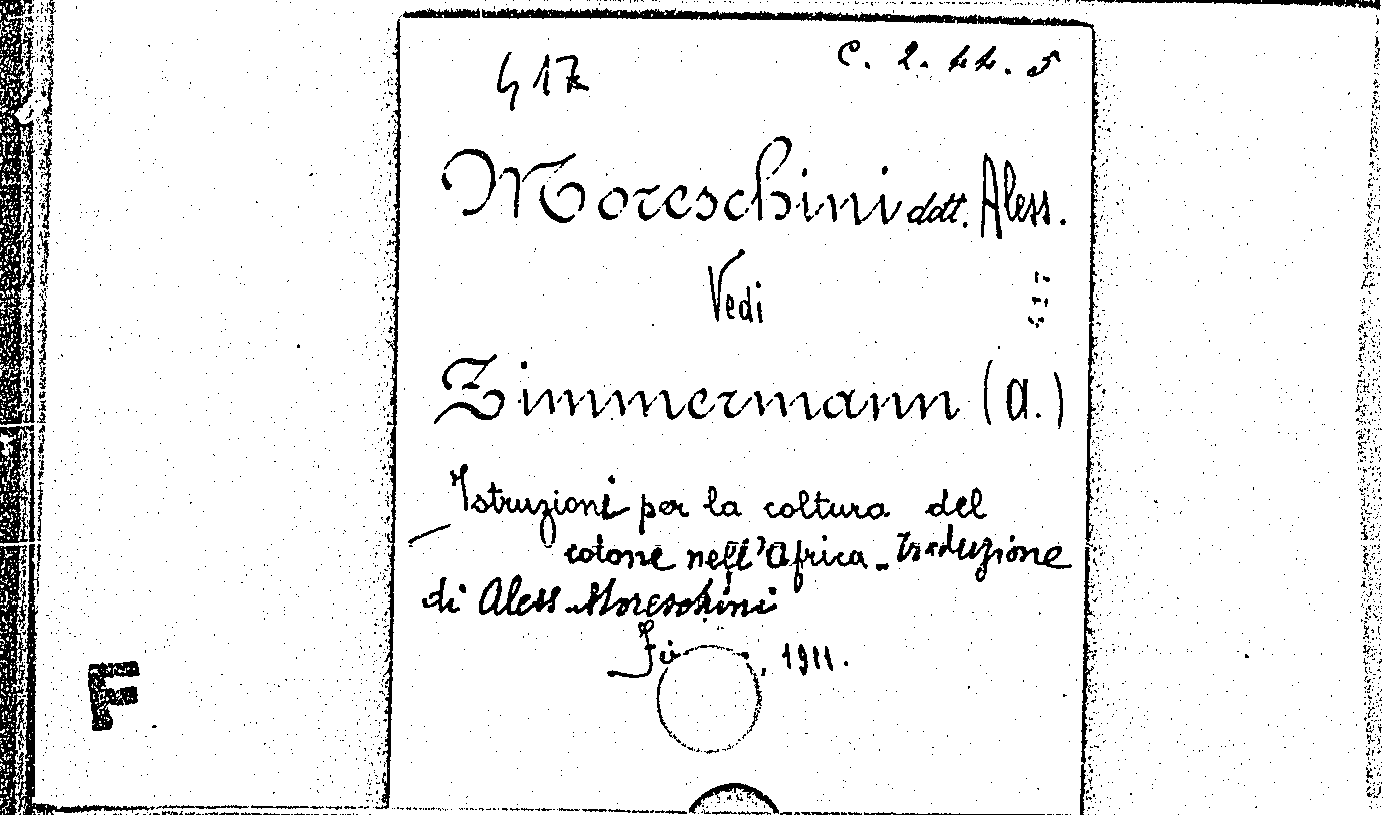 417
C. 2. 44. 5
Moreschini dott. Aless.
Vedi
Zimmermann (A.)
Istruzioni per la coltura del
cotone nell'Africa - Traduzione
di Aless. Moreschini
1911.
F